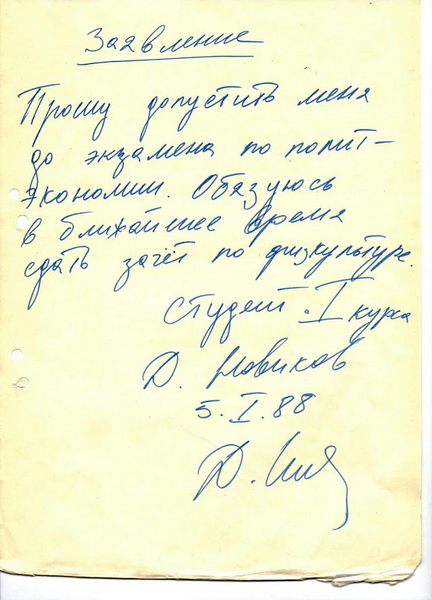 Заявление
Прошу допустить меня
до экзамена по полит-
экономии. Обязуюсь
в ближайшее время
сдать зачёт по физкультуре.
Студент I курса
Д. Новиков
5.I.88
Д.